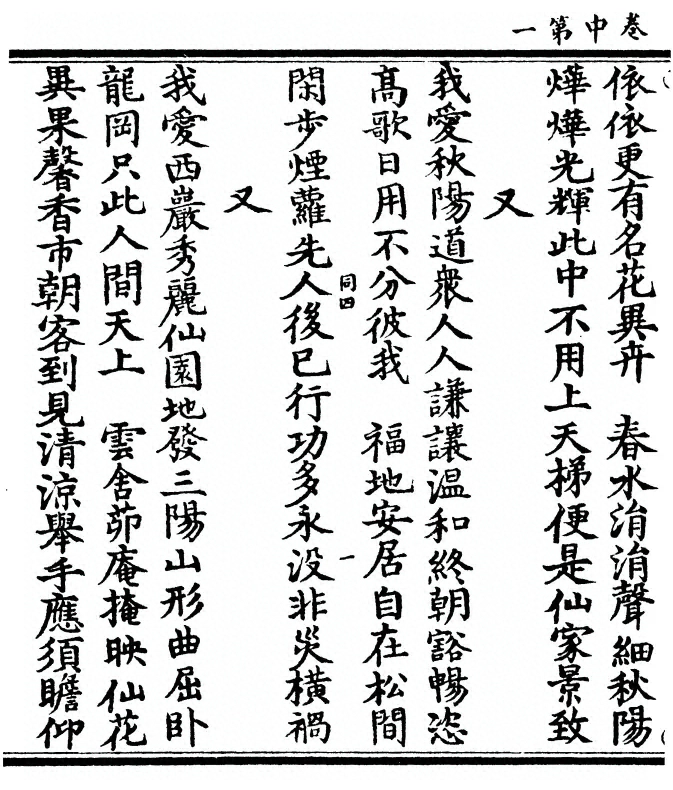 卷中第一
依依更有名花異卉　春水涓涓聲細秋陽
燁燁光輝此中不用上天梯便是仙家景致
又
我愛秋陽道衆人人謙讓温和終朝豁暢恣
髙歌日用不分彼我　福地安居自在松間
同四　一
閑步煙蘿先人後已行功多永没非災橫禍
又
我愛西巖秀麗仙園地發三陽山形曲屈卧
龍岡只此人間天上　雲舍茆庵掩映仙花
異果馨香市朝客到見清涼舉手應須瞻仰